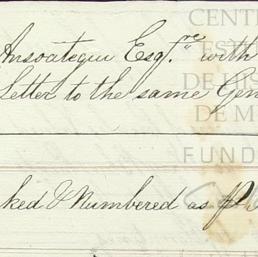 Ansoategui Esqr.re with
Letter to the same Gen
ked & Numbered as P
CENT
EST
DE HIS
DE M
FUND